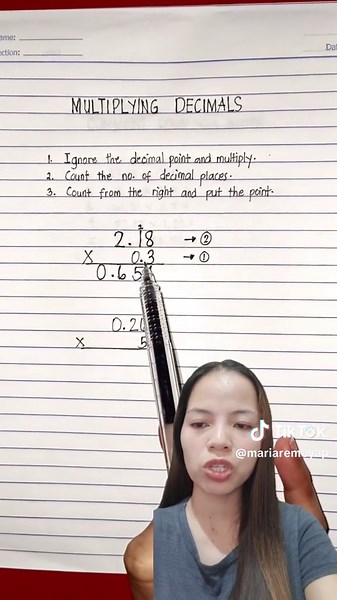 ame:
ection:
Da
MULTIPLYING DECIMALS
1. Ignore the decimal point and multiply.
2. Count the no. of decimal places.
3. Count from the right and put the point.
2
2.18 → ②
x 0.3 → ①
0.65
0.2
x 5
TikTok
@mariaremeyap